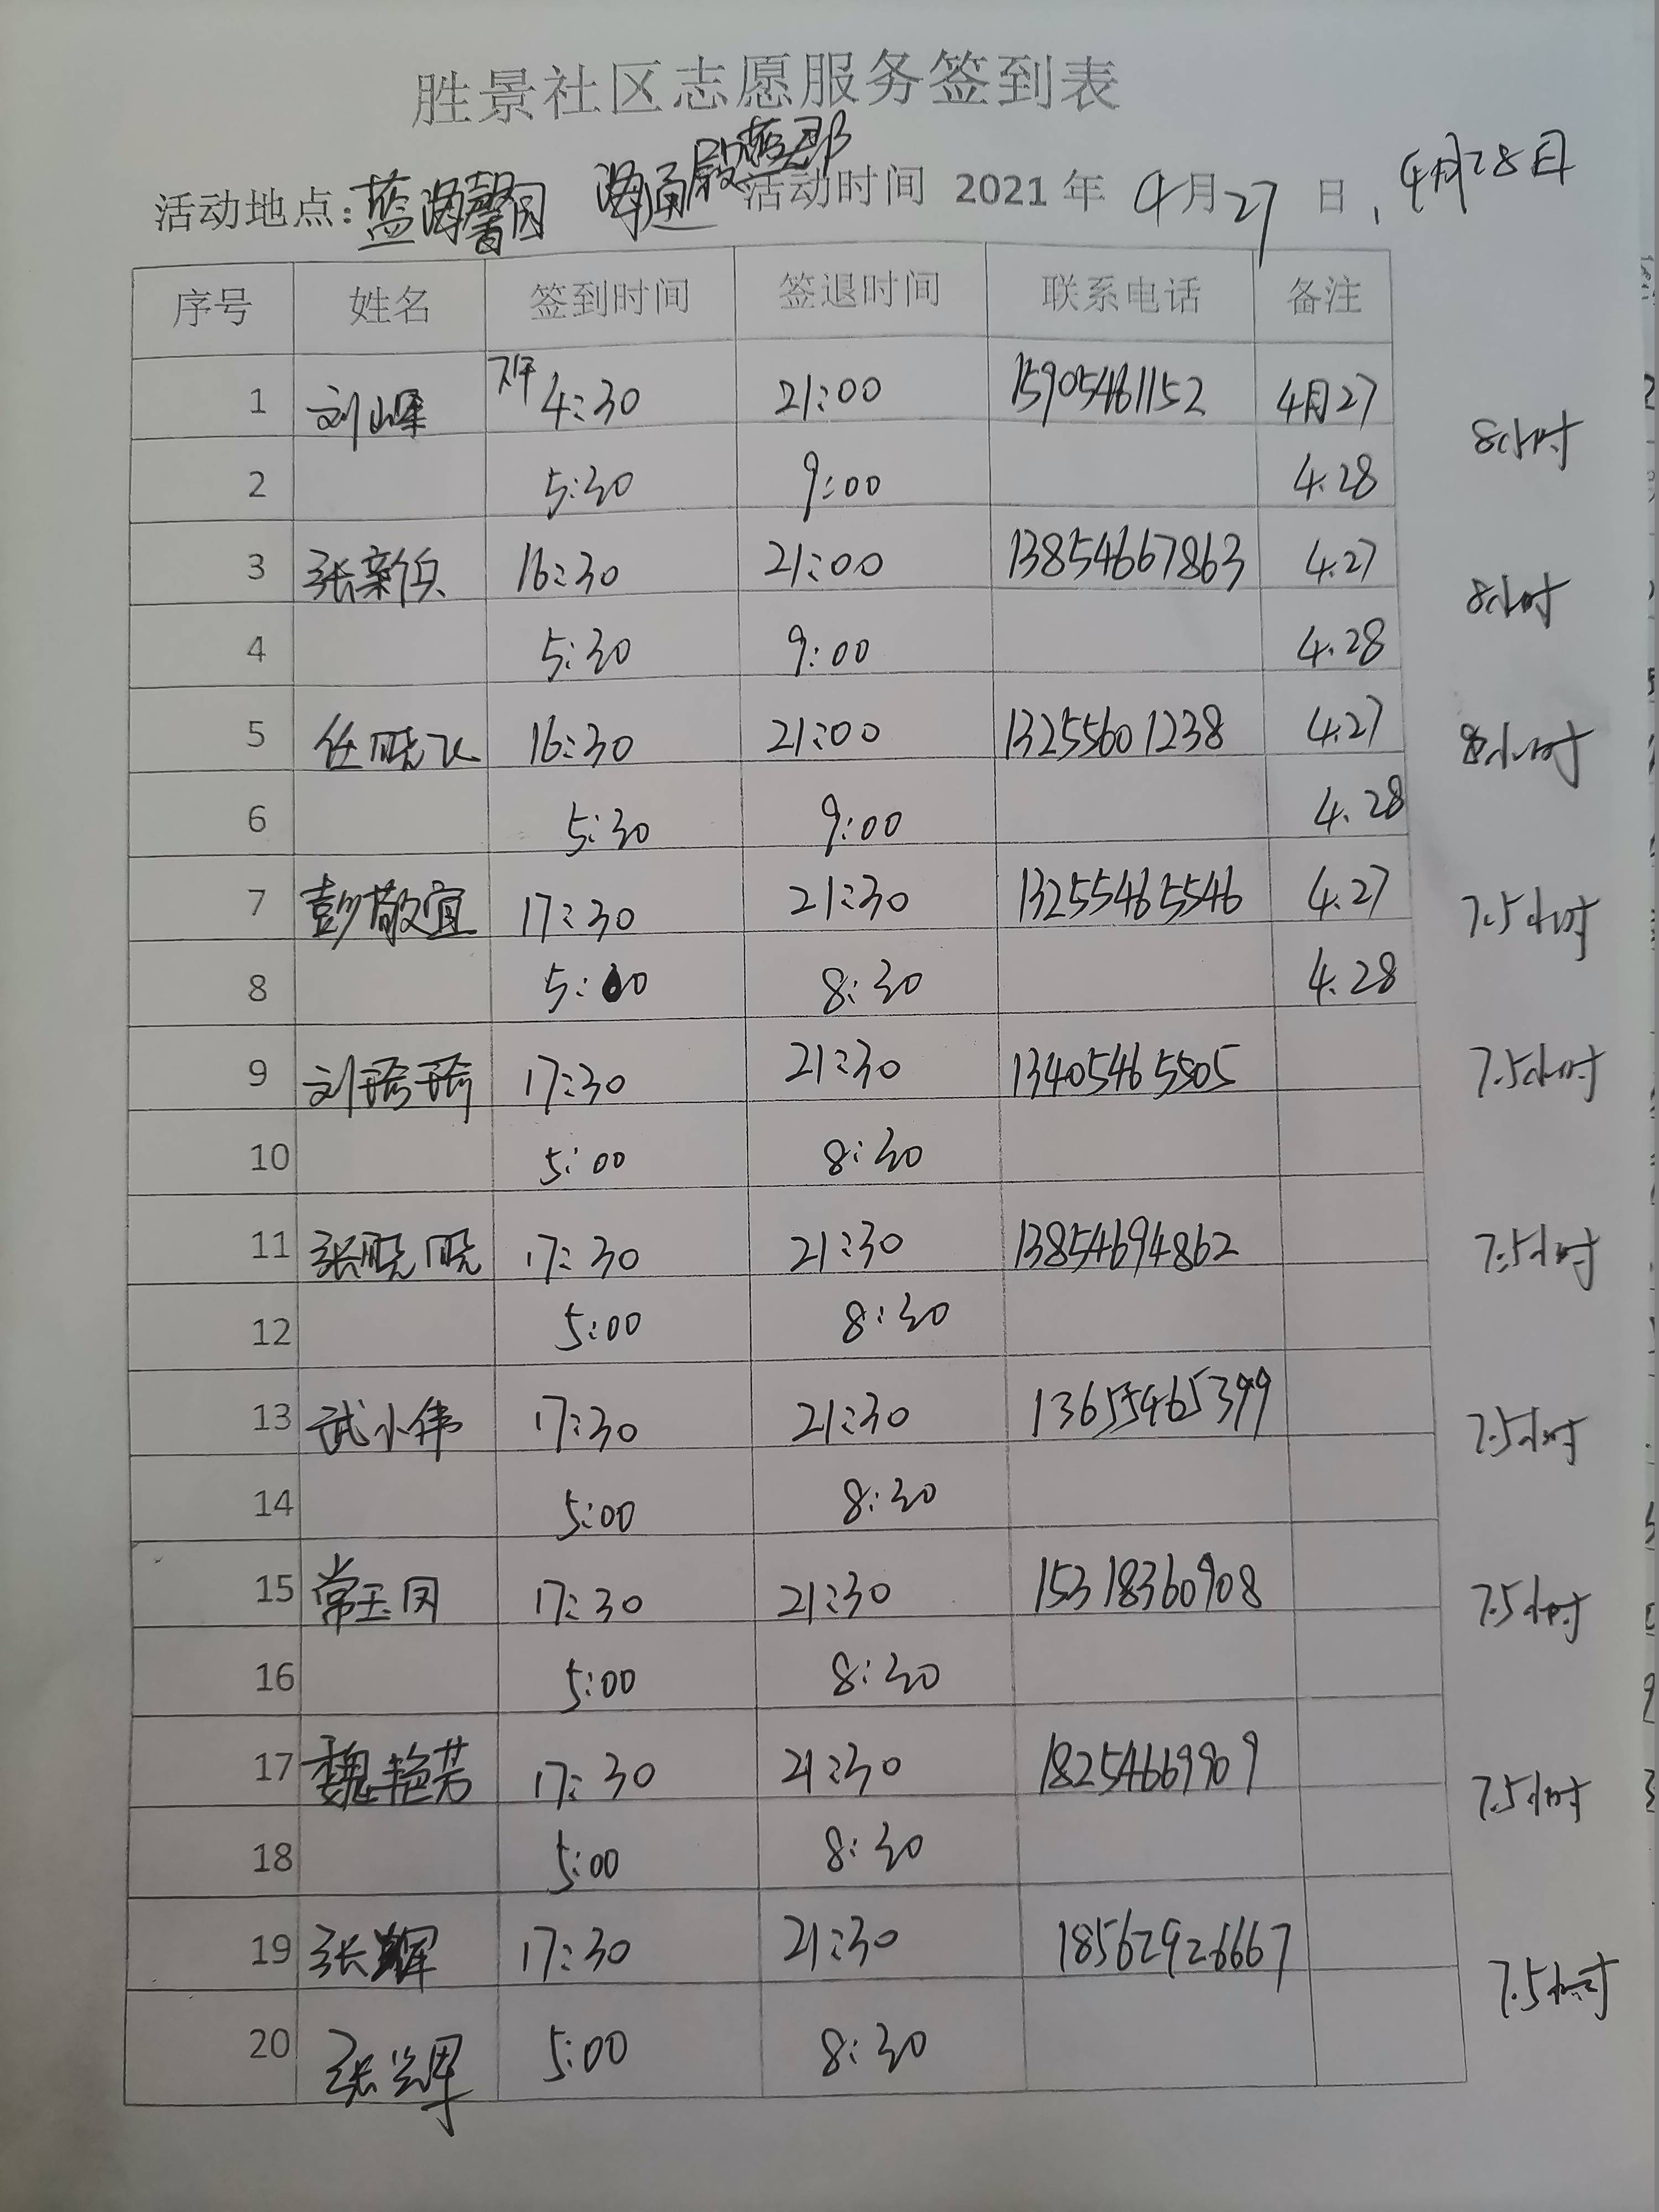 胜景社区志愿服务签到表
活动地点:蓝海馨园 海通 蓝郡 活动时间 2021 年 4月27 日、4月28日
序号 姓名 签到时间 签退时间 联系电话 备注
1 刘峰 下午4:30 21:00 15905461152 4月27
8小时
2 5:30 9:00 4.28
3 张新兵 16:30 21:00 13854667863 4.27
8小时
4 5:30 9:00 4.28
5 任晓飞 16:30 21:00 13255601238 4.27
8小时
6 5:30 9:00 4.28
7 彭敬宜 17:30 21:30 13255465546 4.27
7.5小时
8 5:00 8:30 4.28
9 刘 17:30 21:30 13405465505
7.5小时
10 5:00 8:30
11 张晓晓 17:30 21:30 13854694862
7.5小时
12 5:00 8:30
13 武小伟 17:30 21:30 13655465399
7.5小时
14 5:00 8:30
15 常玉凤 17:30 21:30 15318360908
7.5小时
16 5:00 8:30
17 魏艳芳 17:30 21:30 18254669909
7.5小时
18 5:00 8:30
19 张辉 17:30 21:30 18562926667
7.5小时
20 张辉 5:00 8:30